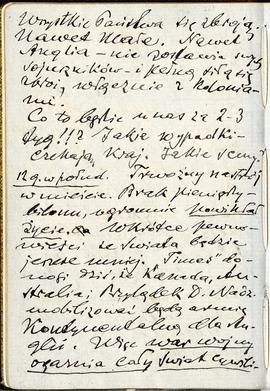 Wszystkie Państwa się zbroją.
Nawet małe. Nawet
Anglia – nie zostawia
sojuszników – i pełną siłą się
zbroi, włącznie z kolonia-
mi.
Co to będzie u nas za 2-3
tyg!!? Jakie wypadki
czekają kraj. Jakie
12 g. w połud. Trwożny nastrój
w mieście. Brak pieniędzy
bilonu, ogromnie powikłał
życie. Wkrótce pewno
wieści ze świata będzie
jeszcze mniej. "Times" do-
nosi dziś, że Kanada, Au-
stralia i Przylądek D. Nadz.
mobilizować będą armię
Kontynentalną dla An-
glii. Więc war wojny
ogarnia cały świat cywili-